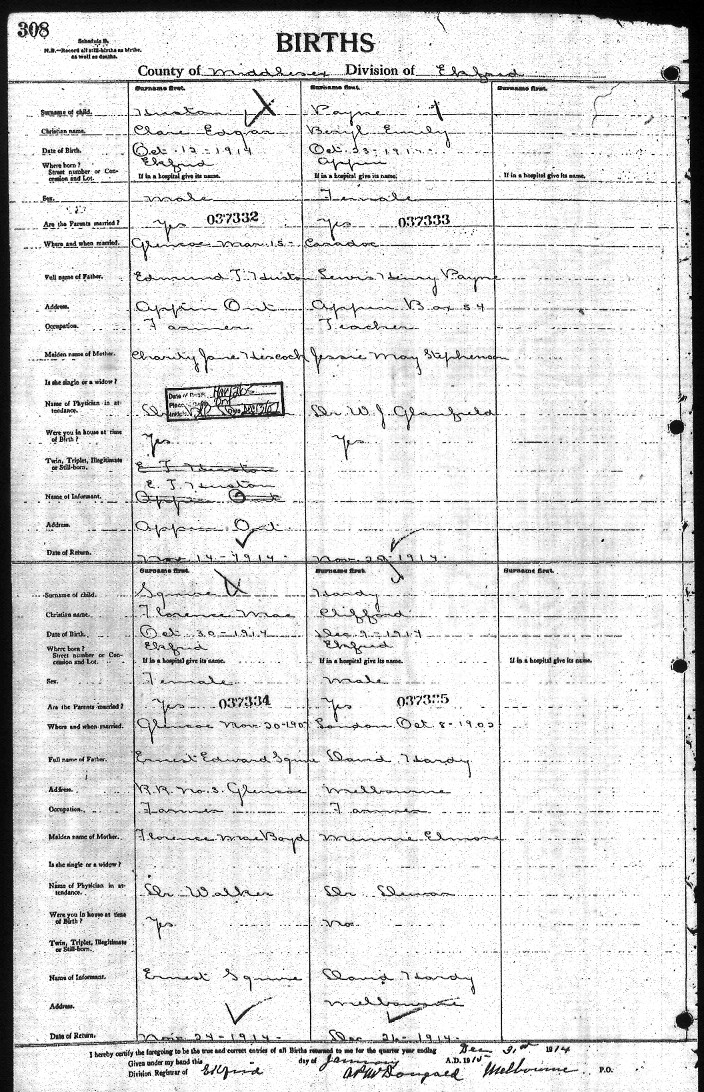 308
Schedule B.
N.B.—Record all still-births as births,
as well as deaths.
BIRTHS
County of Middlesex Division of Ekfrid
Surname first. Surname first. Surname first.
Surname of child. Huston Payne
Christian name. Clare Edgar Beryl Emily
Date of Birth. Oct. 12-1914 Oct. 23-1914
Where born? Ekfrid Appin
Street number or Concession and Lot. If in a hospital give its name. If in a hospital give its name. If in a hospital give its name.
Sex. male Female
Are the Parents married? Yes 037332 Yes 037333
Where and when married. Glencoe Mar. 15- Caradoc
Full name of Father. Edmund T. Huston Lewis Henry Payne
Address. Appin Ont Appin Box 54
Occupation. Farmer Teacher
Maiden name of Mother. Charity Jane Hiscock Jessie May Stephenson
Is she single or a widow?
Name of Physician in attendance. Dr Dr. W. J. Glanfield
Were you in house at time of Birth? Yes Yes
Twin, Triplet, Illegitimate or Still-born. E T Huston
E. T. Huston
Name of Informant. Appin Ont
Address. Appin Ont.
Date of Return. Nov. 14-1914. Nov. 20-1914.
Surname first. Surname first. Surname first.
Surname of child. Squire Hardy
Christian name. Florence Mae Clifford
Date of Birth. Oct. 30-1914 Dec. 9-1914
Where born? Ekfrid Ekfrid
Street number or Concession and Lot. If in a hospital give its name. If in a hospital give its name. If in a hospital give its name.
Sex. Female male
Are the Parents married? Yes 037334 Yes 037335
Where and when married. Glencoe Nov. 20-1907 London Oct 8-1902
Full name of Father. Ernest Edward Squire David Hardy
Address. R.R. No. 3. Glencoe Melbourne
Occupation. Farmer Farmer
Maiden name of Mother. Florence Mae Boyd Minnie Elmore
Is she single or a widow?
Name of Physician in attendance. Dr Walker Dr Dewar
Were you in house at time of Birth? Yes No
Twin, Triplet, Illegitimate or Still-born.
Name of Informant. Ernest Squire David Hardy
Address. Melbourne
Date of Return. Nov. 24-1914. Dec. 26-1914.
I hereby certify the foregoing to be the true and correct entries of all Births returned to me for the quarter year ending Dec 31st 1914
Given under my hand this day of January A.D. 1915
Division Registrar of Ekfrid A P McDougald Melbourne P.O.